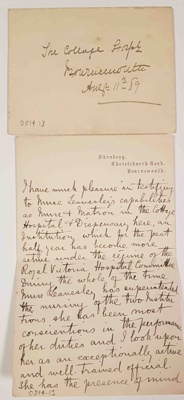 The College Hospl
Bournemouth
Augt 11th 89
0214.13
Nürnberg,
Christchurch Road,
Bournemouth.
I have much pleasure in testifying
to Nurse capabilities
as Nurse & Matron in the College
Hospital & Dispensary here, an
institution which for the past
half year has become more
active under the regime of the
Royal Victoria Hospital Committee
During the whole of the time
Nurse has superintended
the nursing of the two Institu
tions she has been most
conscientious in the performance
of her duties and I look upon
her as an exceptionally active
and well trained official.
She has the presence of mind
0214.13